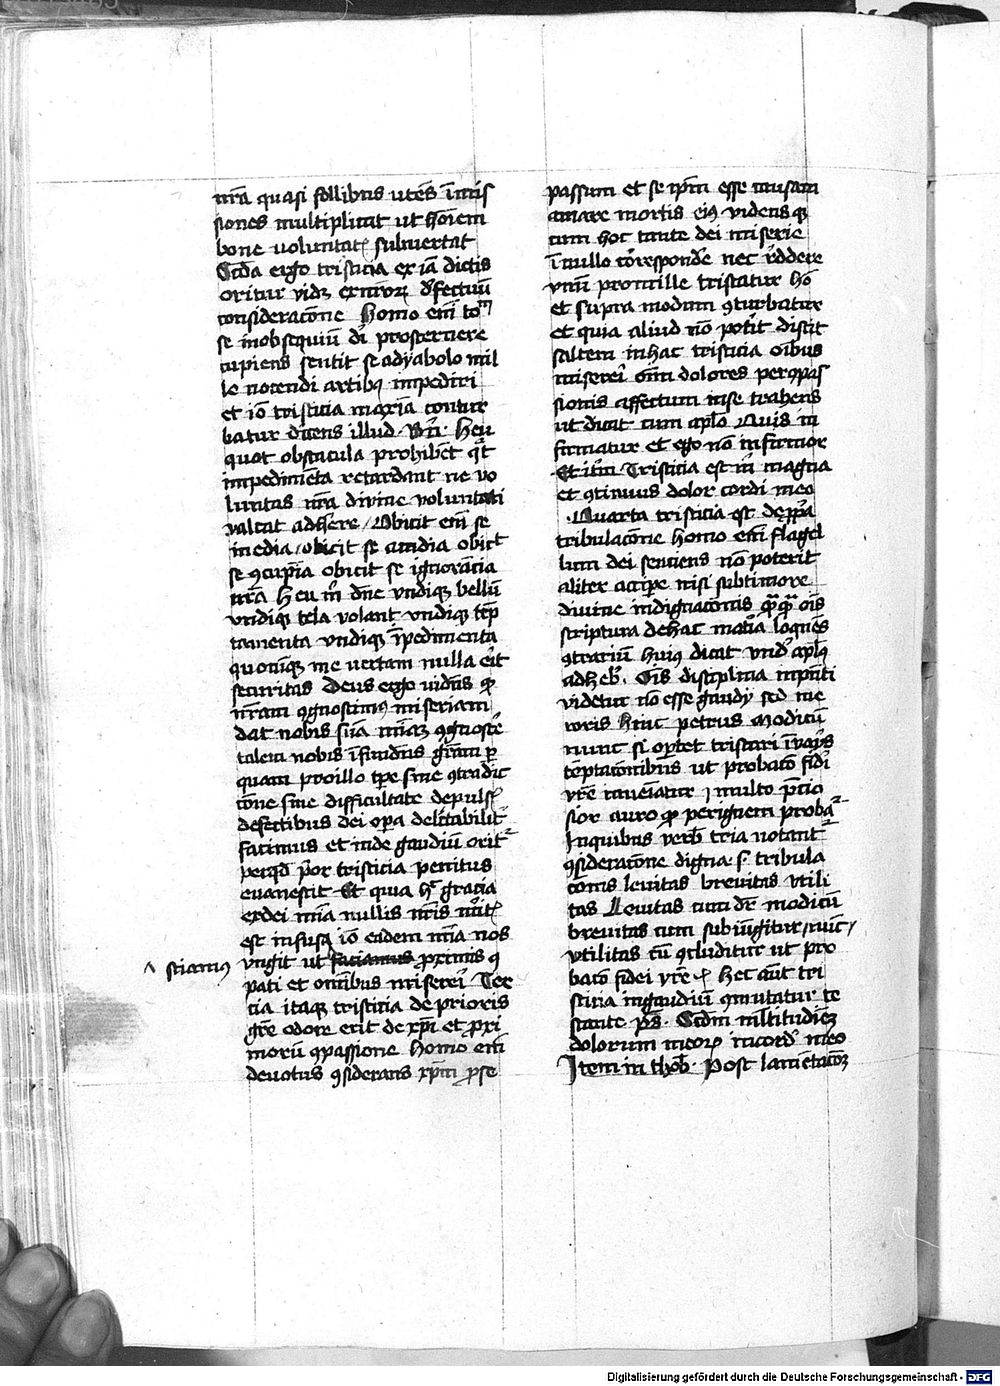 nr̄a quasi follibus utēs īmis
siones multiplicat ut hōiem
bone voluntat subvertat
Scd̄a ergo tristicia ex iā dictis
oritur vidz ex nr̄orz defectuū
consideracōne Homo em̄
se in obsequiū dī prosternere
cupiens sentit se a dyabolo mil
le nocendi artibq impediri
et iō tristicia maxīa contur
batur dicens illud Heu
quot obstacula prohibēt
impedimēta retardant ne vo
luntas nr̄a divine voluntati
valeat adh̄ere / Obicit em̄ se
inedia / obicit se accidia obic̄t
se ꝯcupīa obicit se ignorācia
nr̄a Heu m̄ dn̄e undiqz bellū
undiqz tela volant undiqz tēp
tamenta undiqz īpedimenta
quocūqz me vertam nulla eīt
securitas Deus ergo vidēs
nr̄am ꝯgnoscimꝰ miseriam
dat nobis suā mīaz ꝯgnosc̄e
talem nobis īfundēs grām p
quam pro illo tpe sine ꝯtradic
cōne sine difficultate depulsꝭ
defectibus dei opa delectabilit
facimus et inde gaudiū orit
per qd p̄or tristicia penitus
evanescit Et quia gracia
ex dei mīa nullis nr̄is
est infusa iō eadem mīa nos
ungit ut faciamus proximis ꝯ
^ sciamꝰ
pati et om̄ibus misereī Ter
cia itaqz tristicia de prioris
grē odore erit de xp̄i et proxi
morū ꝯpassione Homo em̄
devotus ꝯsiderans xp̄m pro se
passum et se ip̄m esse causam
amare mortis eiꝰ vidensqz
cum hoc tante dei miserie
ī nullo corespondē nec r̄ddere
unū pro mille tristatur hō
et supra modum ꝯturbatur
et quia aliud nō potīt discit
saltem in hac tristicia oībus
misereī oīm dolores per ꝯpas
sionis affectum in se trahens
ut dicat cum apl̄o Quis in
firmatur et ego nō infirmor
Et itm̄ Tristicia est m̄ magna
et ꝯtinuus dolor cordi meo
Quarta tristicia est de
tribulacōne homo em̄ flagel
lum dei senciens nō poterit
aliter accipe nisi sub timore
divine indignacōnis oīs
scriptura de hac matīa loquēs
ꝯtrariū huiꝰ dicat und̄ apl̄s
ad heb. Oīs disciplina in pn̄ti
videtur nō esse gaudy sed me
roris hinc petrus Modicū
nunc si oportet tristari ī varꝭs
tēptacōnibus ut probacō fidī
vr̄e inveniatur multo p̄cio
sior auro qd per ignem proba
In quibus verb tria notant
ꝯsideracōne digna s. tribula
cōnis levitas brevitas utili
tas Levitas cum dr̄ modicū
brevitas cum subiūgitur nūc /
utilitas cū ꝯcluditur ut pro
bacō fidei vr̄e Hec aūt tri
sticia in gaudiū ꝯmutatur te
stante ps. Scd̄m multitudinēz
dolorum meorz in cord meo
Item in thob. Post lacrimacōez
Digitalisierung gefördert durch die Deutsche Forschungsgemeinschaft - DFG